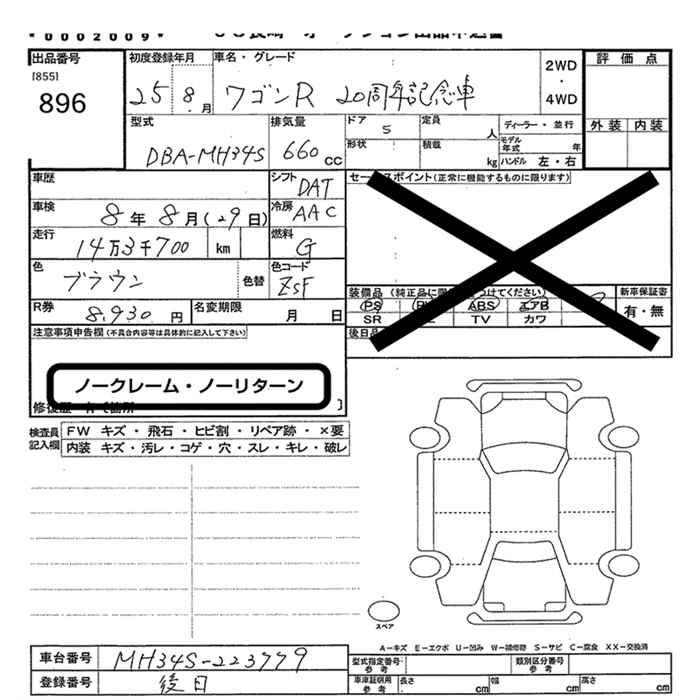 *0002009*
出品番号
[855]
896
初度登録年月
25 8 月
車名・グレード
ワゴンR 20周年記念車
2WD
・
4WD
評価点
外装 内装
型式
DBA-MH34S
排気量
660 cc
ドア 5
定員 人
ディーラー・並行
形状
積載 kg
モデル年式 年
ハンドル 左・右
車歴
シフト DAT
セールスポイント(正常に機能するものに限ります)
車検
8年 8月(29日)
冷房 AAC
走行
14万3千700 km
燃料 G
色
ブラウン
色替
色コード ZSF
装備品
PS ABS エアB
SR TV カワ
新車保証書
有・無
R券
8,930 円
名変期限 月 日
後日品
注意事項申告欄(不具合内容等は具体的に記入して下さい)
ノークレーム・ノーリターン
検査員記入欄
FW キズ・飛石・ヒビ割・リペア跡・×要
内装 キズ・汚レ・コゲ・穴・スレ・キレ・破レ
スペア
A-キズ E-エクボ U-凹み W-補修跡 S-サビ C-腐食 XX-交換済
車台番号 MH34S-223779
登録番号 後日
型式指定番号 参考
類別区分番号 参考
車庫証明用 参考
長さ cm 幅 cm 高さ cm